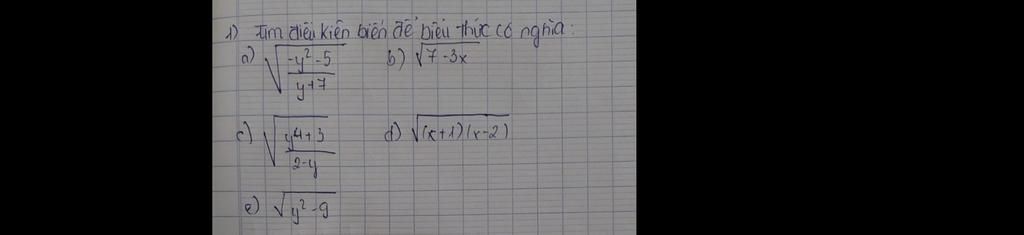 1) Tìm điều kiện biến để biểu thức có nghĩa:
a) √((-y²-5)/(y+7)) b) √(7-3x)
c) √((y⁴+3)/(2-y)) d) √((x+1)(x-2))
e) √(y²-9)